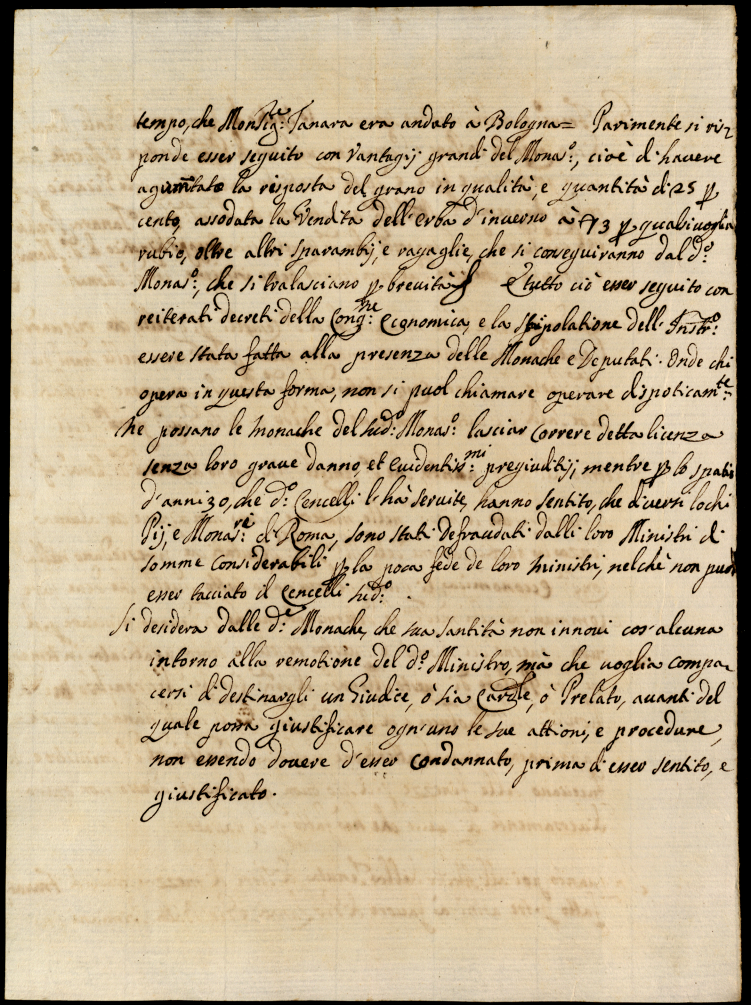 tempo, che Monsig.re Tanara era andato à Bologna= Parimente si ris=
ponde esser seguito con Vantagij grandi del Monas.o, cioè di havere
agumtato la risposta del grano in qualità, e quantità di 25 p
cento, assodata la Vendita dell'erba d'inverno à 73 p qualsivoglia
rubio, oltre altri sparambij, e ragaglie, che si conseguiranno dal d.o
Monas.o, che si tralasciano p brevità E tutto ciò esser seguito con
reiterati decreti della Cong.ne Economica, e la stipolatione dell'Instr.o
essere stata fatta alla presenza delle Monache e Deputati. Onde chi
opera in questa forma, non si puol chiamare operare dispoticam.te
Ne possano le Monache del sud.o Monas.o lasciar correre detta licenza
senza loro grave danno, et Evidentiss.mi pregiuditij, mentre p lo spatio
d'anni 30, che d.o Cencelli l'hà servite, hanno sentito, che diversi lochi
Pij, e Monas.rè di Roma, sono stati defraudati dalli loro Ministri di
somme considerabili p la poca fede de loro ministri, nel chè non puol
esser tacciato il Cencelli sud.o.
Si desidera dalle d.e Monache, che sua Santità non innovi cos'alcuna
intorno alla remotione del d.o Ministro, mà che voglia compia
cersi di destinargli un Giudice, ò sia Car.le, ò Prelato, avanti del
quale possa giustificare ogn'uno le sue attioni, e procedure,
non essendo dovere d'esser Condannato, prima di esser sentito, e
giustificato.